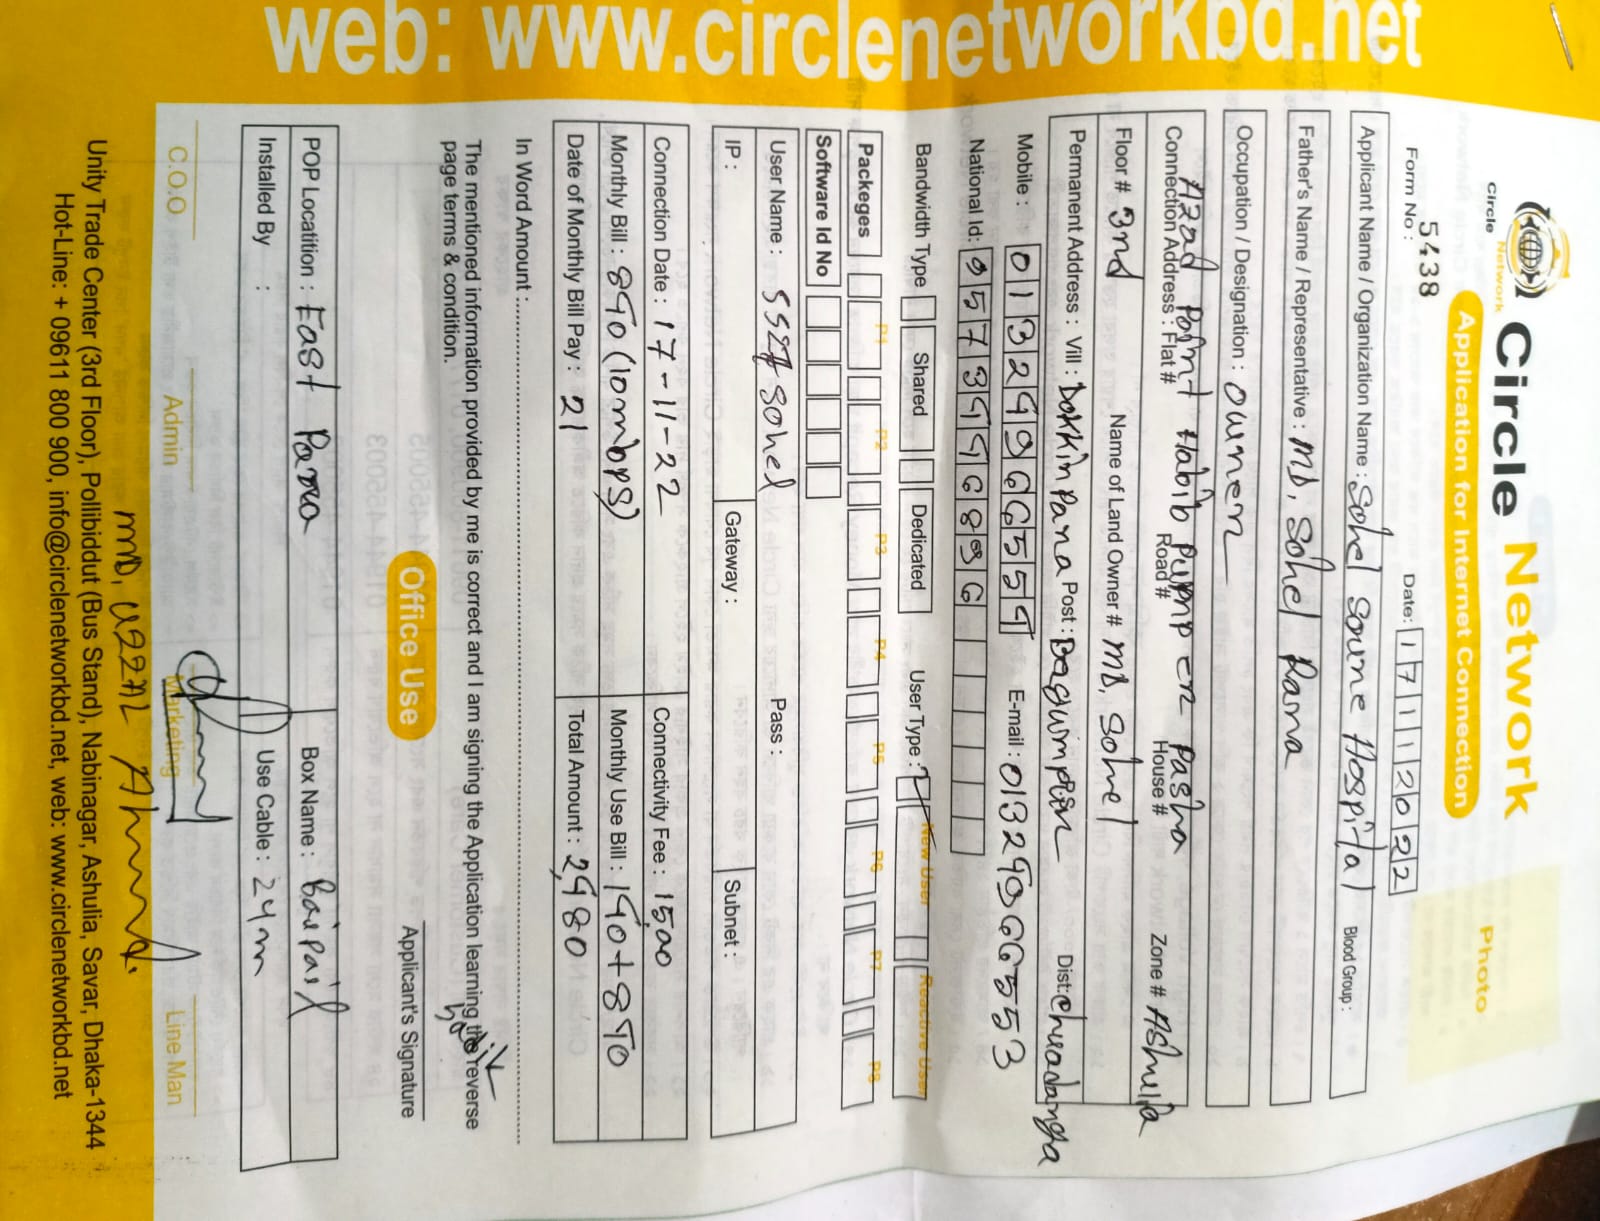 web: www.circlenetworkbd.net
Circle Network
Circle Network
Application for Internet Connection
Photo
Form No :
5438
Date: 17112022
Applicant Name / Organization Name : Sohel Soune Hospital Blood Group :
Father's Name / Representative : MD. Sohel Rana
Occupation / Designation : owner
Azad Point Habib Pump er Pasha
Connection Address : Flat # Road# House # Zone # Ashulia
Floor # 3rd Name of Land Owner # MD. Sohel
Permanent Address : Vill : Dokkhinpara Post : Dist: Chuadanga
Mobile : E-mail :
National Id:
Bandwidth Type Shared Dedicated User Type : New User Reactive User
Packeges P1 P2 P3 P4 P5 P6 P7 P8
Software Id No
User Name : Sohel Pass :
IP : Gateway : Subnet :
Connection Date : 17-11-22 Connectivity Fee : 1500
Monthly Bill : 890 (10mbps) Monthly Use Bill :
Date of Monthly Bill Pay : 21 Total Amount :
In Word Amount :
The mentioned information provided by me is correct and I am signing the Application learning the reverse
page terms & condition.
Applicant's Signature
Office Use
POP Locatition : East Para Box Name : Baipail
Installed By : Use Cable : 24m
C.O.O Admin Marketing Line Man
Unity Trade Center (3rd Floor), Pollibiddut (Bus Stand), Nabinagar, Ashulia, Savar, Dhaka-1344
Hot-Line: + 09611 800 900, info@circlenetworkbd.net, web: www.circlenetworkbd.net